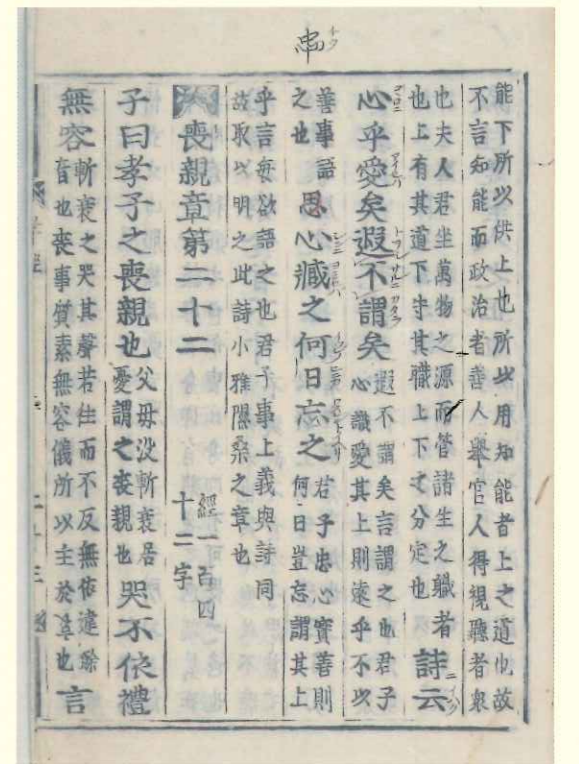 忠
能下所以供上也所以用知能者上之道也故
不言知能而政治者善人舉官人得視聽者衆
也夫人君坐萬物之源而管諸生之軄者
也上有其道下守其軄上下之分定也
詩云
心乎愛矣遐不謂矣
遐不謂矣言謂之也君子
心誠愛其上則遠乎不以
善事語
之也
忠心臧之何日忘之
君子忠心實善則
何日豈忘謂其上
乎言每欲語之也君子事上義與詩同
故取以明之此詩小雅隰桑之章也
喪親章第二十二
經一百四
十二字
子曰孝子之喪親也
父母没斬衰居
憂謂之喪親也
哭不依禮
無容
斬衰之哭其聲若往而不反無依違餘
音也喪事質素無容儀所以主於哀也
言